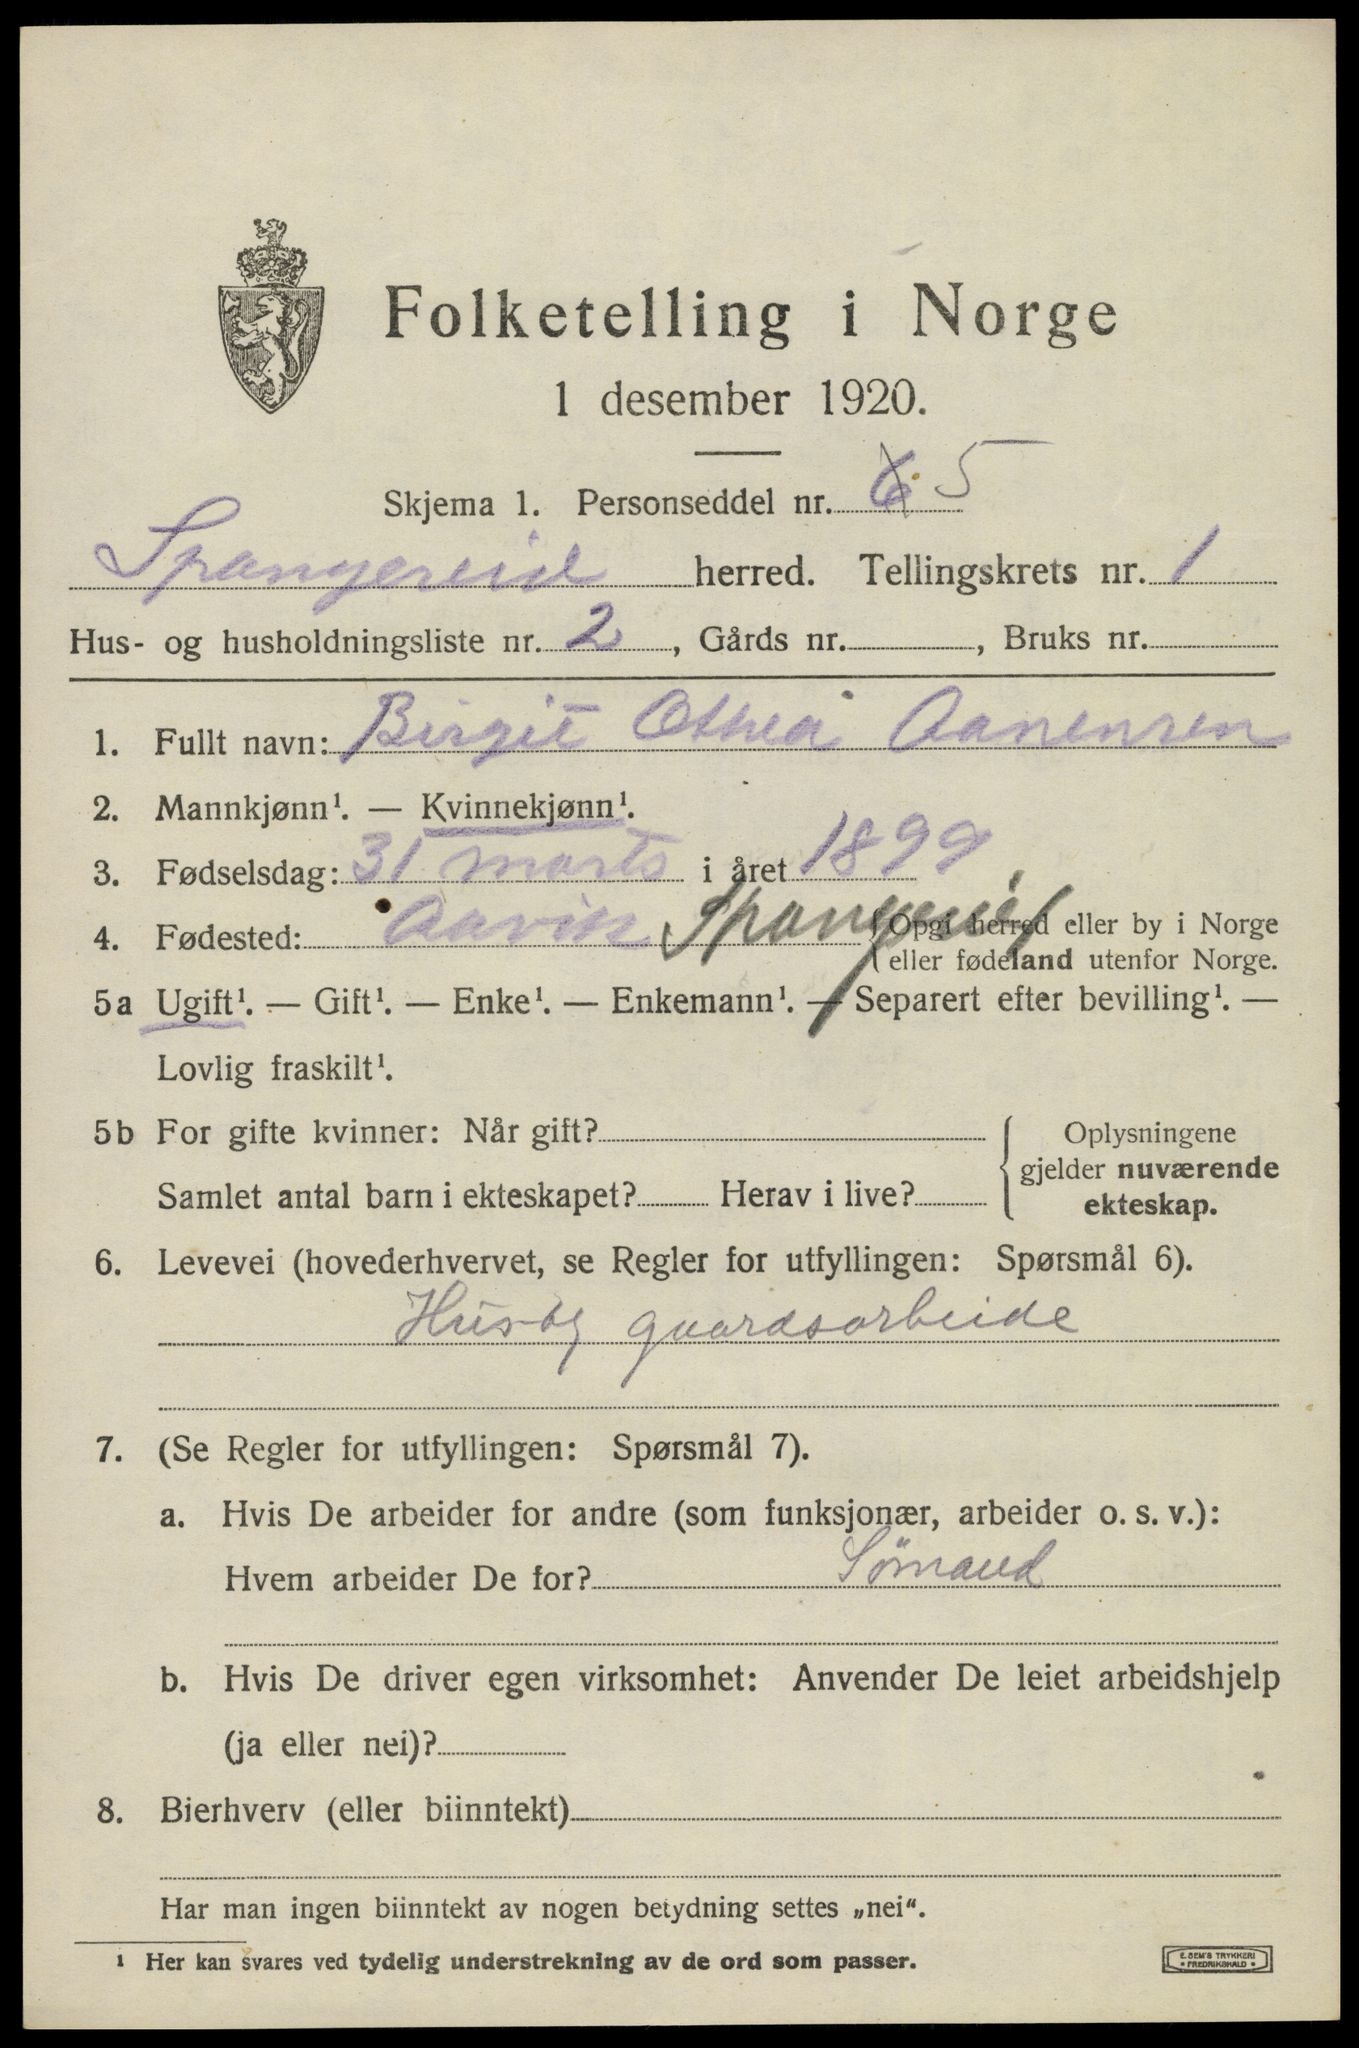 Folketelling i Norge
1 desember 1920.
Skjema 1. Personseddel nr. 6 5
Spangereid herred. Tellingskrets nr. 1
Hus- og husholdningsliste nr. 2, Gårds nr. , Bruks nr.
1. Fullt navn: Birgit Othea Aanensen
2. Mannkjønn¹. — Kvinnekjønn¹.
3. Fødselsdag: 31 marts i året 1899
4. Fødested: Aavik Spangereid {Opgi herred eller by i Norge
eller fødeland utenfor Norge.
5a Ugift¹. — Gift¹. — Enke¹. — Enkemann¹. — Separert efter bevilling¹. —
Lovlig fraskilt¹.
5b For gifte kvinner: Når gift?
Samlet antal barn i ekteskapet? Herav i live?
{ Oplysningene
gjelder nuværende
ekteskap.
6. Levevei (hovederhvervet, se Regler for utfyllingen: Spørsmål 6).
gaardsarbeide
7. (Se Regler for utfyllingen: Spørsmål 7).
a. Hvis De arbeider for andre (som funksjonær, arbeider o. s. v.):
Hvem arbeider De for? Sömand
b. Hvis De driver egen virksomhet: Anvender De leiet arbeidshjelp
(ja eller nei)?
8. Bierhverv (eller biinntekt)
Har man ingen biinntekt av nogen betydning settes „nei“.
¹ Her kan svares ved tydelig understrekning av de ord som passer.
E. SEM'S TRYKKERI
• FREDRIKSHALD •